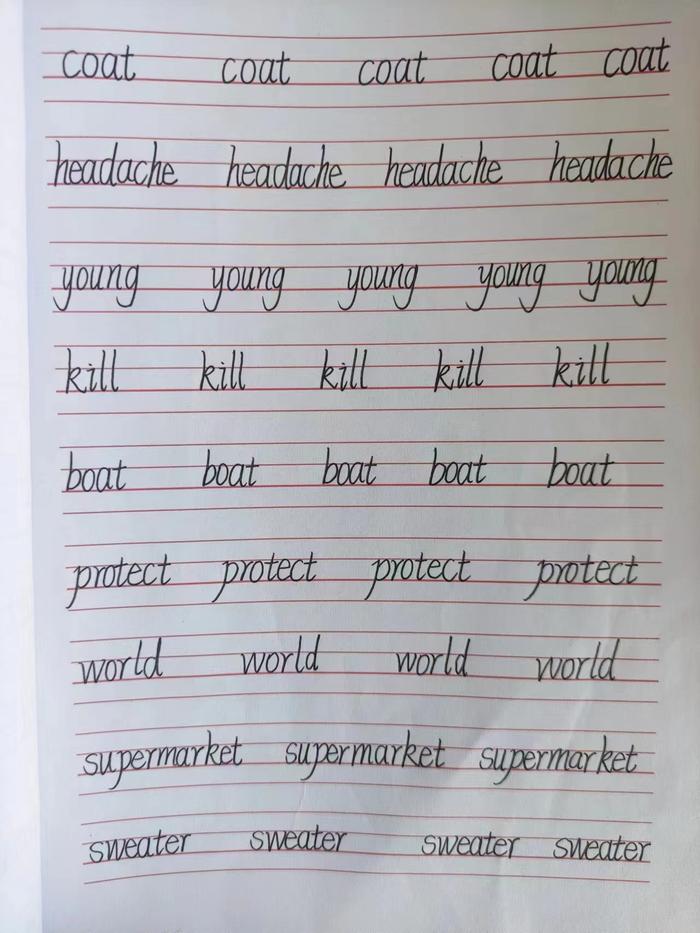 coat coat coat coat coat
headache headache headache headache
young young young young young
kill kill kill kill kill
boat boat boat boat boat
protect protect protect protect
world world world world
supermarket supermarket supermarket
sweater sweater sweater sweater